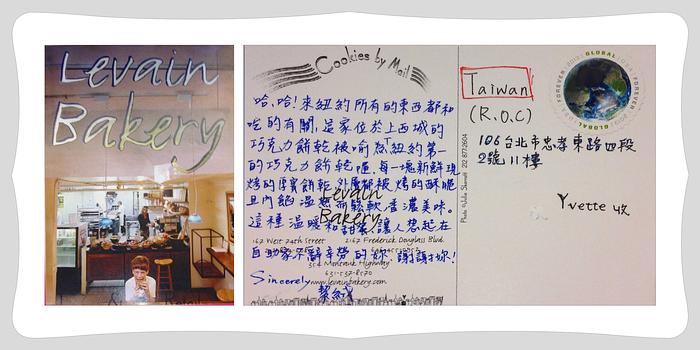 Levain
Bakery
Cookies by Mail
哈,哈!來紐約所有的東西都和
吃的有關,這家位於上西城的
巧克力餅乾被喻為紐約第一
的巧克力餅乾喔,每一塊新鮮現
烤的厚實餅乾,外層都被烤的酥脆
且內餡溫熱而鬆軟,香濃美味。
Levain
Bakery
這種溫暖和甜蜜,讓人想起在
167 West 74th Street 2167 Frederick Douglass Blvd.
自助家不辭辛勞的妳,謝謝妳!
354 Montauk Highway
631-537-8570
Sincerely
www.levainbakery.com
Photo
212 8772604
FOREVER
GLOBAL
Taiwan
(R.O.C)
106台北市忠孝東路四段
2號11樓
Yvette 收